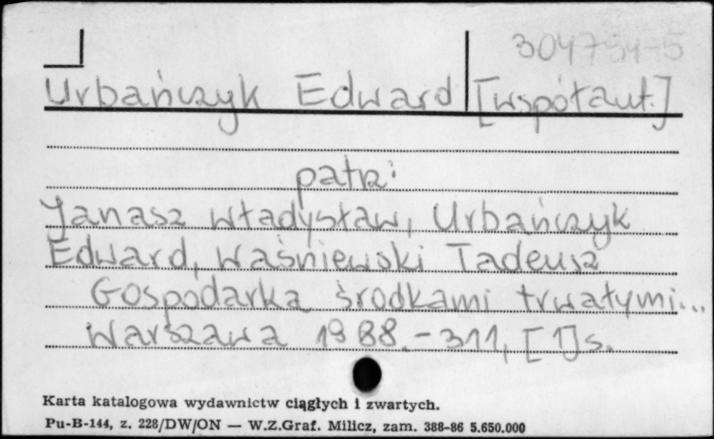 Urbańczyk Edward [współaut.]
patrz:
Janasz Władysław, Urbańczyk
Edward, Waśniewski Tadeusz
Gospodarka środkami trwałymi...
Warszawa 1988.-311, [1] s.
Karta katalogowa wydawnictw ciągłych i zwartych.
Pu-B-144, z. 228/DW/ON — W.Z.Graf. Milicz, zam. 388-86 5.650.000